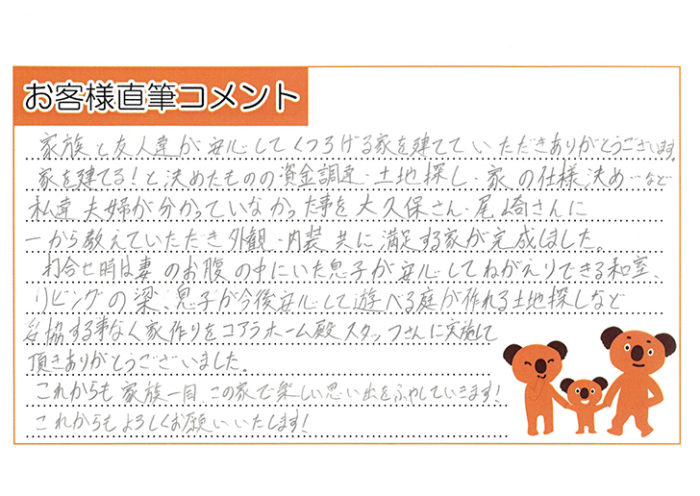 お客様直筆コメント
家族と友人達が安心してくつろげる家を建てていただきありがとうございます。
家を建てる!と決めたものの資金調達・土地探し・家の仕様決め…など
私達夫婦が分かっていなかった事を大久保さん・尾崎さんに
一から教えていただき外観・内装共に満足する家が完成しました。
打合せ時は妻のお腹の中にいた息子が安心してねがえりできる和室、
リビングの梁、息子が今後安心して遊べる庭が作れる土地探しなど
妥協する事なく家作りをコアラホーム殿スタッフさんに実施して
頂きありがとうございました。
これからも家族一同、この家で楽しい思い出をふやしていきます!
これからもよろしくお願いいたします!